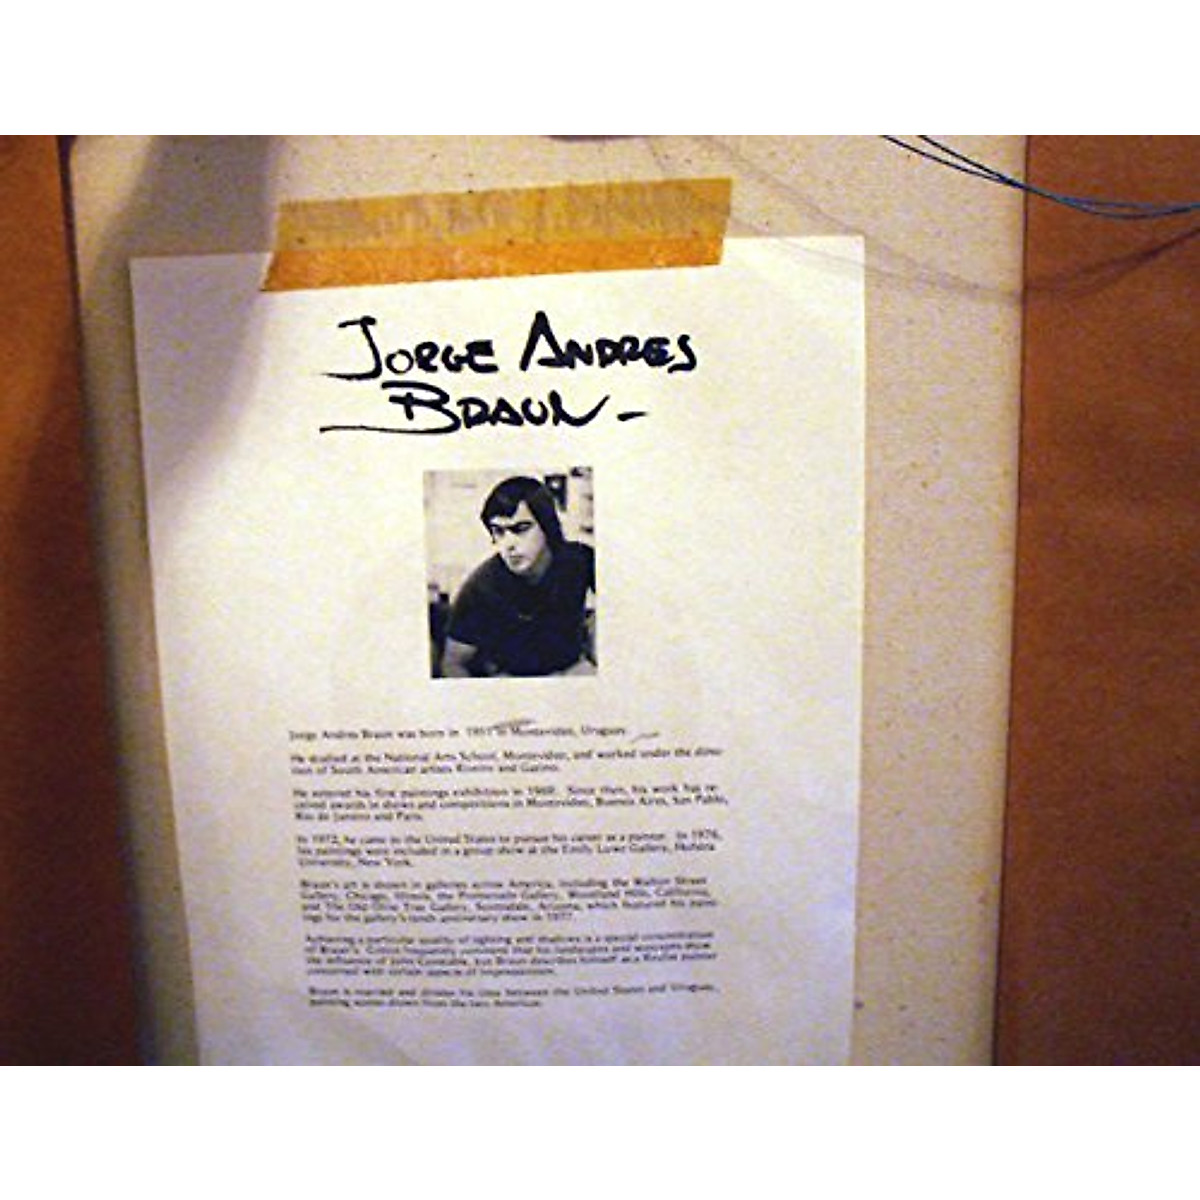 JORGE ANDRES
BRAUN -
Jorge Andres Braun was born in 1951 in Montevideo, Uruguay
He studied at the National Arts School, Montevideo, and worked under the direc-
tion of South American artists and
He entered his first paintings exhibition in Since then, his work has re-
ceived awards in shows and competitions in Montevideo, Buenos Aires, San Pablo,
Rio de Janeiro and Paris.
In 1972, he came to the United States to pursue his career as a painter. In 1976,
his paintings were included in a group show at the Emily Lowe Gallery, Hofstra
University, New York.
Braun's art is shown in galleries across America, including the Walton Street
Gallery, Chicago, Illinois, the Promenade Gallery, Woodland Hills, California,
and The Old Olive Tree Gallery, Scottsdale, Arizona, which featured his paint-
ings for the gallery's tenth anniversary show in 1977.
Achieving a particular quality of lighting and shadows is a special
of Braun's. Critics frequently comment that his landscapes and seascapes show
the influence of John Constable, but Braun describes himself as a Realist painter
concerned with certain aspects of Impressionism.
Braun is married and divides his time between the United States and Uruguay,
painting scenes drawn from the two Americas.